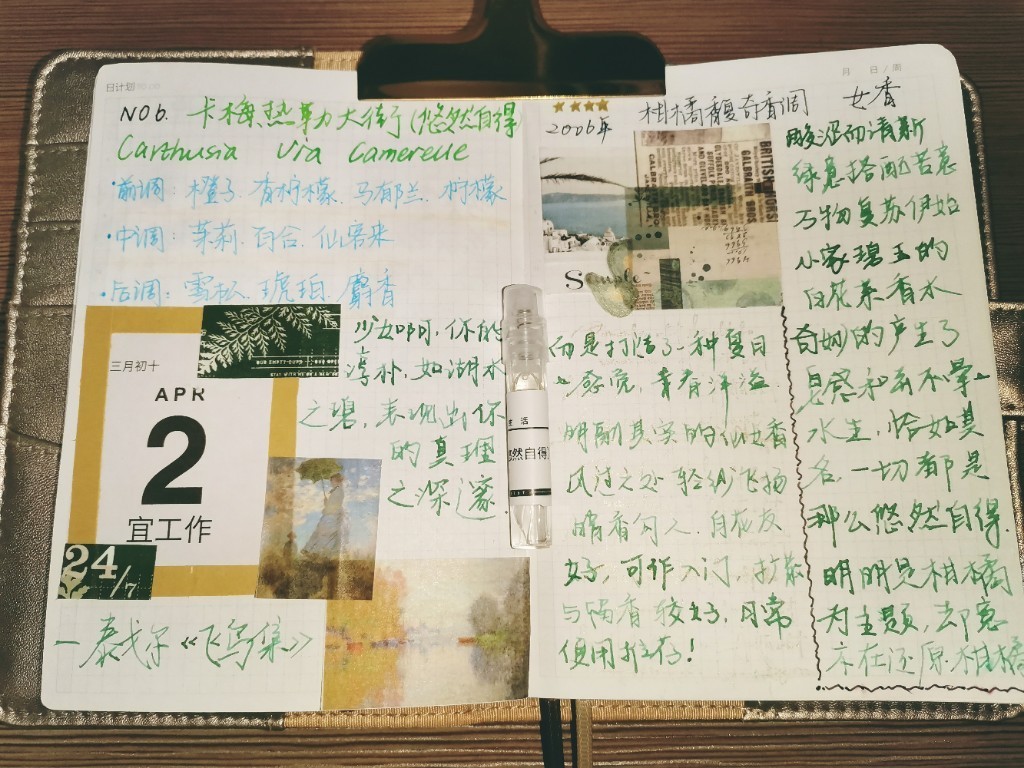 日计划
NO6. 卡梅热勒大街(悠然自得)
Carthusia Via Camerelle
·前调: 橙子. 青柠檬. 马郁兰. 柠檬
·中调: 茉莉. 百合. 仙客来
·后调: 雪松. 琥珀. 麝香
三月初十
APR
2
宜工作
24/7
少女啊, 你的
淳朴, 如湖水
之碧, 表现出你
的真理
之深邃.
—泰戈尔《飞鸟集》
生 活
悠然自得
月 日/周
2006年
柑橘馥奇香调 女香
BRITISH
酸涩而清新
绿意搭配苦意
万物复苏伊始
小家碧玉的
白花茶香水
奇妙的产生了
皂感和我不掌
水生, 恰如其
名, 一切都是
那么悠然自得.
明明是柑橘
为主题, 却意
不在还原柑橘
而是打造了一种夏日
感觉, 青春洋溢.
明副其实的仙女香
风过之处轻纱飞扬
暗香勾人. 白花友
好, 可作入门, 扩散
与留香较好, 日常
使用推荐!